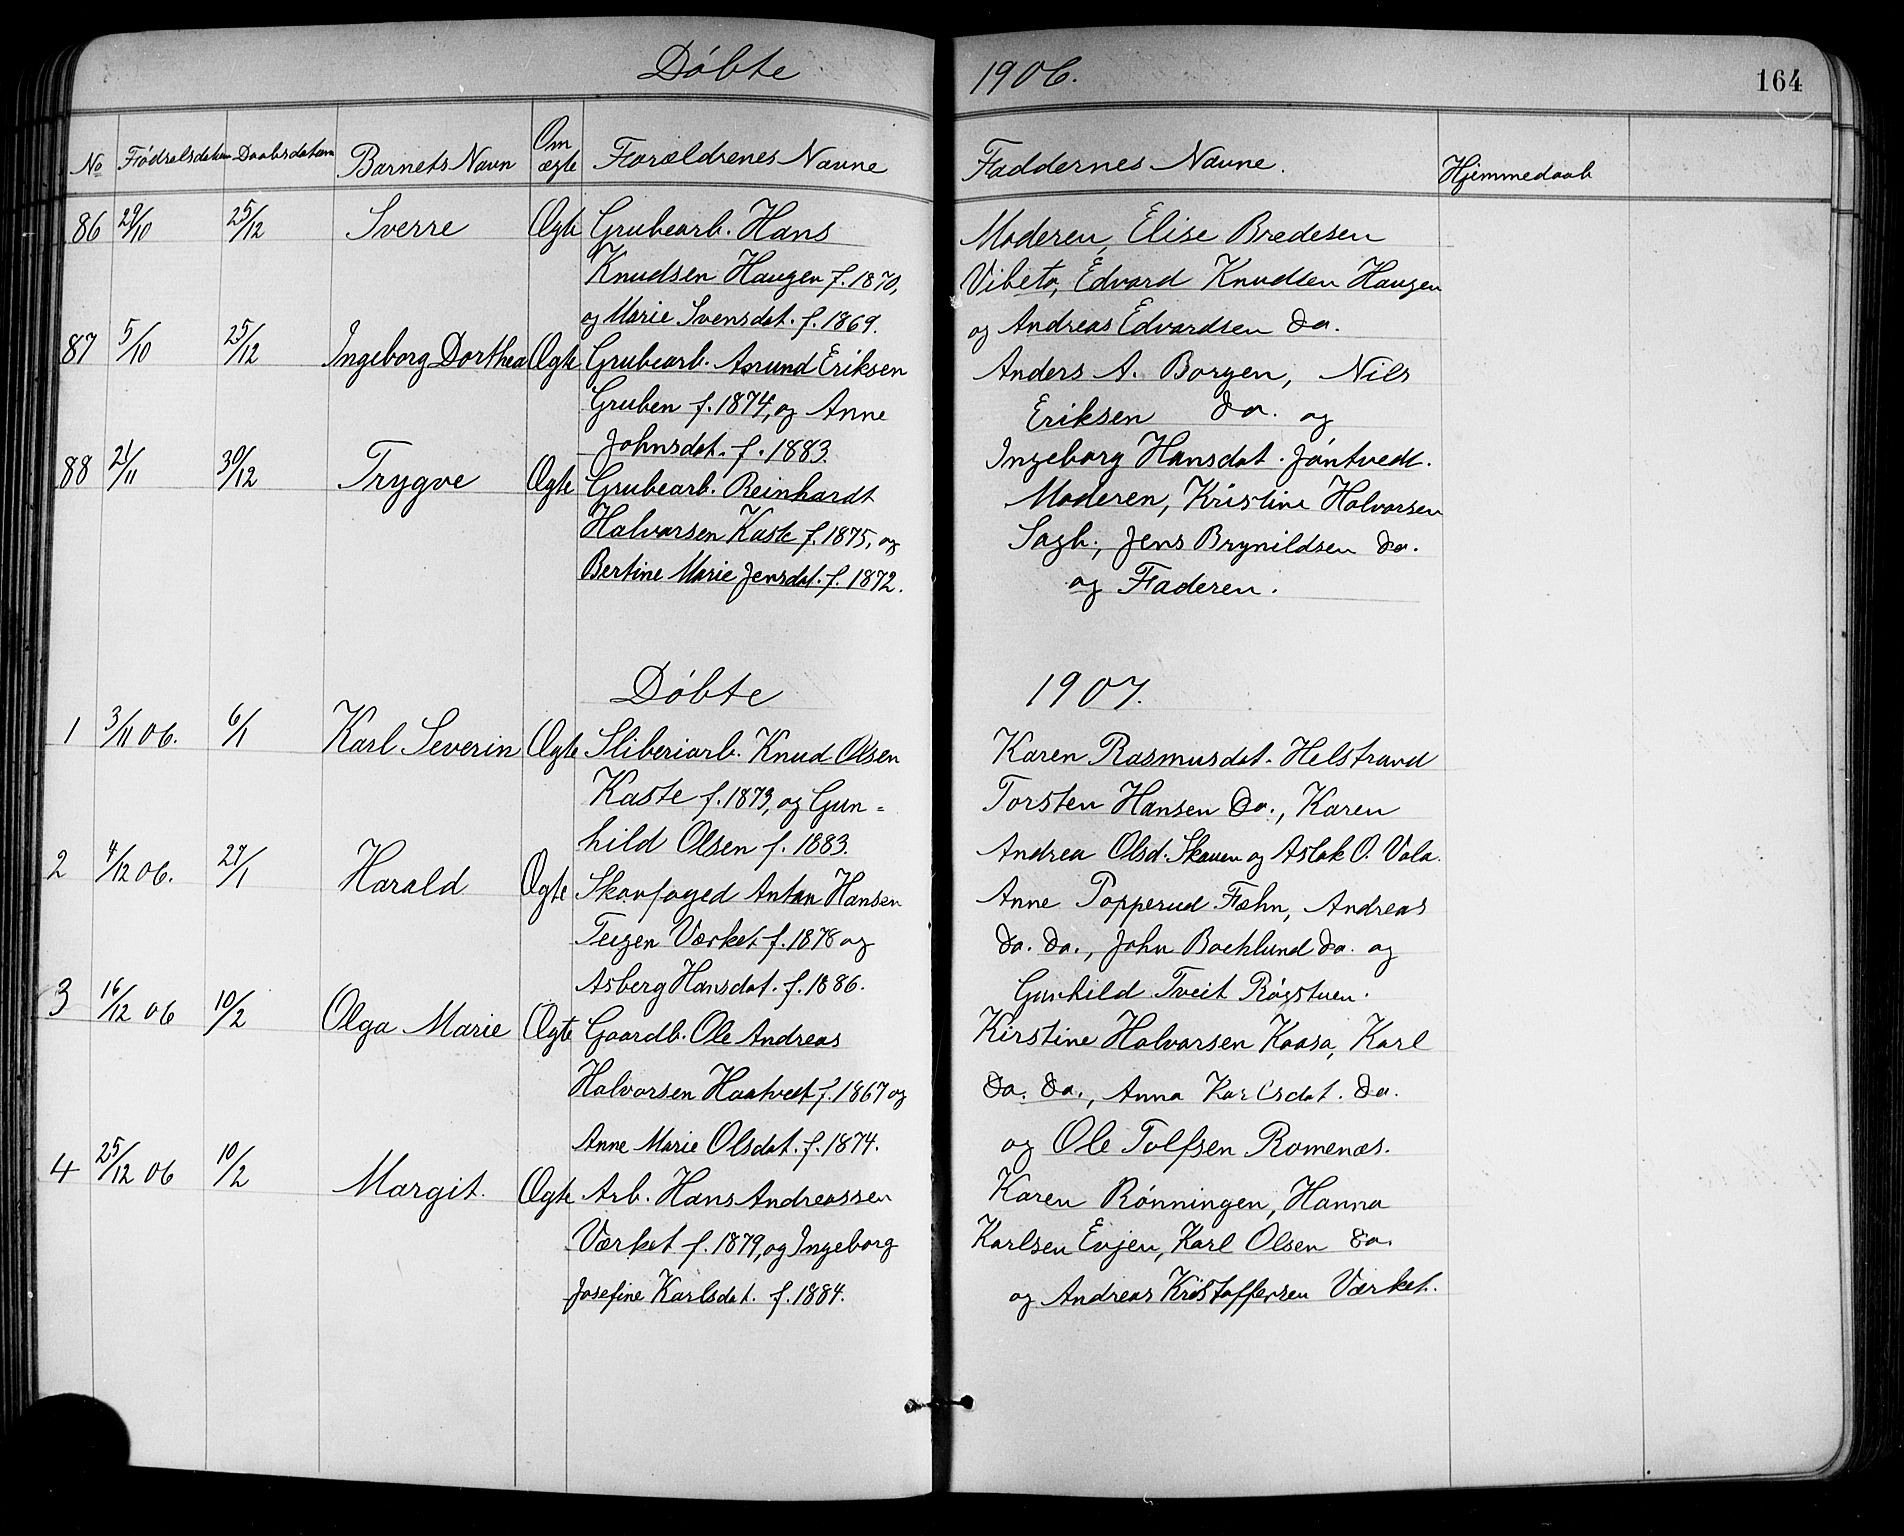 Döbte 1906. 164
No Födselsdatum Daabsdatum Barnets Navn Om ægte Forældrenes Navne Faddernes Navne. Hjemmedaab
86 29/10 25/12 Sverre Ægte Grubearb. Hans
Knudsen Haugen f. 1870,
og Marie Svensdat. f. 1869.
Moderen, Elise Bredesen
Vibeto, Edvard Knudsen Haugen
og Andreas Edvardsen do.
87 5/10 25/12 Ingeborg Dorthea Ægte Grubearb. Asmund Eriksen
Gruben f. 1874, og Anne
Johnsdat. f. 1883.
Anders A. Borgen, Nils
Eriksen do. og
Ingeborg Hansdat. Jöntvedt.
88 21/11 30/12 Trygve Ægte Grubearb. Reinhardt
Halvorsen Kaste f. 1875, og
Bertine Marie Jensdat. f. 1872.
Moderen, Kristine Halvorsen
Sagb., Jens Brynildsen do.
og Faderen.
Döbte 1907.
1 3/11 06. 6/1 Karl Severin Ægte Sliberiarb. Knud Olsen
Kaste f. 1873, og Gun=
hild Olsen f. 1883.
Karen Rasmusdat. Helstrand
Torsten Hansen do., Karen
Andrea Olsd. Skauen og Aslak O. Vala.
2 4/12 06. 27/1 Harald Ægte Skovfoged Anton Hansen
Teigen Værket f. 1878 og
Asberg Hansdat. f. 1886.
Anne Popperud Fæhn, Andreas
do. do., John Backlund do. og
Gunhild Tveit Rögstuen.
3 16/12 06 10/2 Olga Marie Ægte Gaardb. Ole Andreas
Halvorsen Haatvedt f. 1867 og
Anne Marie Olsdat. f. 1874.
Kirstine Halvorsen Kaasa, Karl
do. do., Anna Karlsdat. do.
og Ole Tolfsen Romenæs.
4 25/12 06 10/2 Margit. Ægte Arb. Hans Andreassen
Værket f. 1879, og Ingeborg
Josefine Karlsdat. f. 1884.
Karen Rönningen, Hanna
Karlsen Evjen, Karl Olsen do.
og Andreas Kristoffersen Værket.